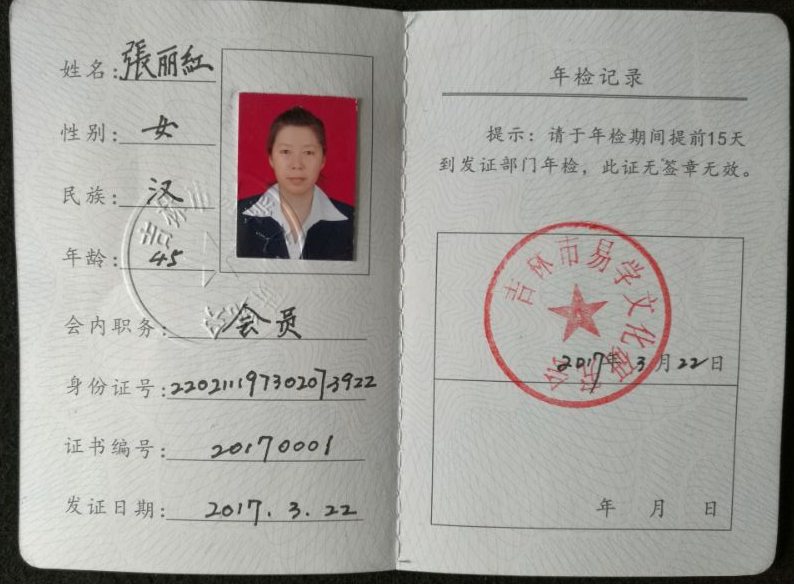 姓名：張丽紅
性别：女
民族：汉
年龄：45
会内职务：会员
身份证号：220211197302073922
证书编号：20170001
发证日期：2017.3.22
吉林市
年检记录
提示：请于年检期间提前15天
到发证部门年检，此证无签章无效。
吉林市易学文化
2017年3月22日
年 月 日